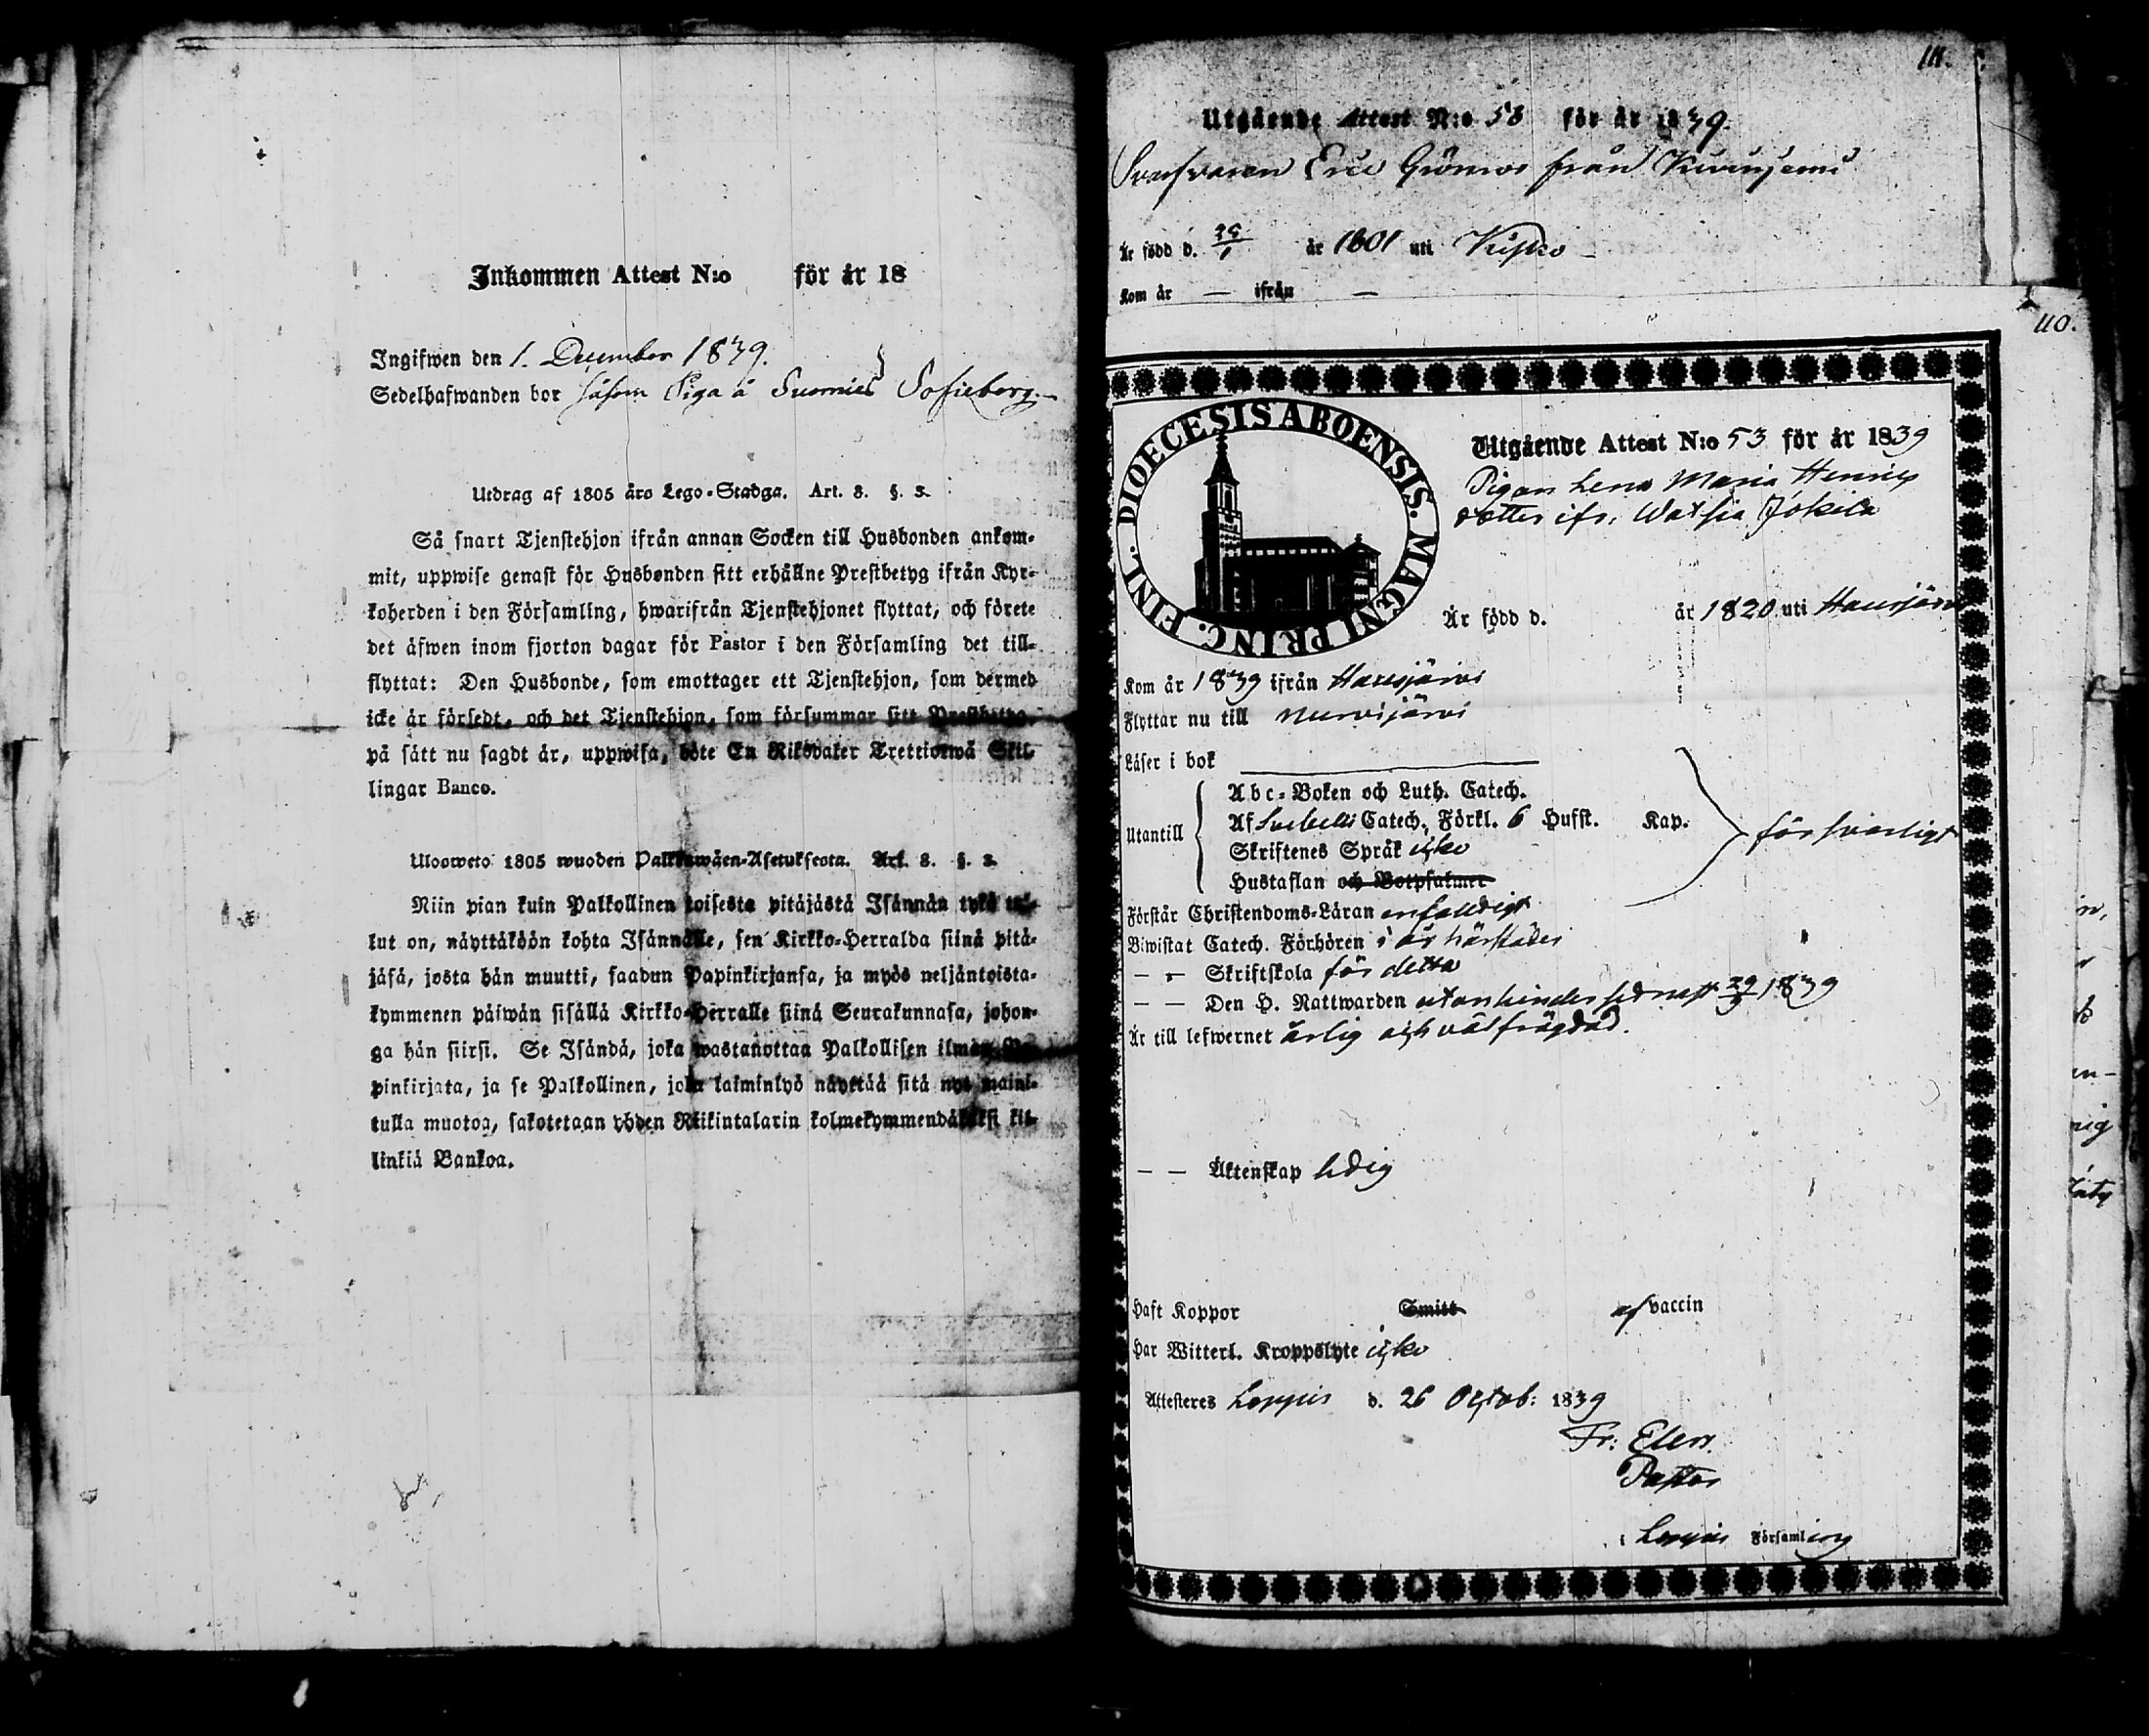 Inkommen Attest N:o för år 18
Ingifwen den 1. December 1839.
Sedelhafwanden bor såsom Piga å Suomies Sofieberg.
Utdrag af 1805 åro Lego-Stadga. Art. 8. §. 3.
Så snart Tjenstehjon ifrån annan Socken till Husbonden ankom-
mit, uppwise genast för Husbonden sitt erhållne Prestbetyg ifrån Kyr-
koherden i den Församling, hwarifrån Tjenstehjonet flyttat, och förete
det äfwen inom fjorton dagar för Pastor i den Församling det till-
flyttat: Den Husbonde, som emottager ett Tjenstehjon, som dermed
icke är försedt, och det Tjenstehjon, som försummar sitt Prestbetyg,
på sätt nu sagdt är, uppwisa, böte En Riksdaler Trettiotwå Skil-
lingar Banco.
Ulosweto 1805 wuoden Palkkawäen-Asetuksesta. Art. 8. §. 3.
Niin pian kuin Palkollinen toisesta pitäjästä Isännän tykö tul-
lut on, näyttäköön kohta Isännälle, sen Kirkko-Herralda siinä pitä-
jäsä, josta hän muutti, saadun Papinkirjansa, ja myös neljäntoista-
kymmenen päiwän sisällä Kirkko-Herralle siinä Seurakunnasa, johon-
ga hän siirsi. Se Isändä, joka wastanottaa Palkollisen ilman Pa-
pinkirjata, ja se Palkollinen, joka laiminlyö näyttää sitä nyt maini-
tulla muotoa, sakotetaan yhden Riikintalarin kolmekymmendäkaksi kil-
linkiä Bankoa.
111.
Utgående Attest N:o 58 för år 1839.
Eric från
Är född d. år 1801 uti
Kom år — ifrån —
110.
DIOECESIS ABOENSIS. MAGNI PRINC. FINL.
Utgående Attest N:o 53 för år 1839
Pigan Lena Maria Henrics
dotter ifr. Jokila
Är född d. år 1820 uti Hausjärvi
Kom år 1839 ifrån Hausjärvi
Flyttar nu till Nurmijärvi
Läser i bok
Utantill
Abc-Boken och Luth. Catech.
Af Svebelii Catech. Förkl. 6 Hufst. Kap.
Skriftenes Språk icke
Hustaflan och Botpsalmer
försvarligt
Förstår Christendoms-Läran enfaldigt
Biwistat Catech. Förhören i år härstädes
— „— Skriftskola för detta
— — Den H. Nattwarden utan hinder sednast 29/9 1839
Är till lefwernet ärlig och välfrägdad.
— — Äktenskap ledig
Haft Koppor Smitt af vaccin
Har Witterl. Kroppslyte icke
Attesteres Loppis d. 26 Octob: 1839
Fr:
Pastor
i Loppis Församling